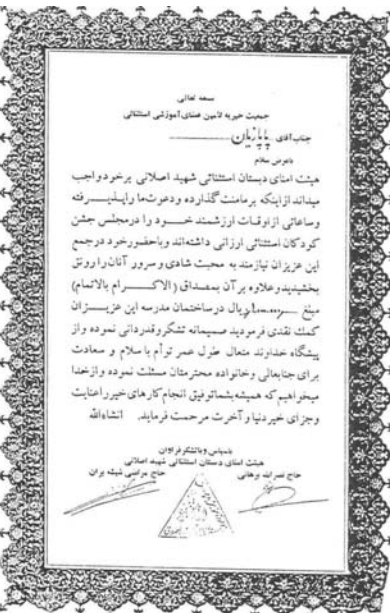 بسمه تعالی
جمعیت خیریه تأمین فضای آموزشی استثنائی
جناب آقای پاپازیان
باعرض سلام
هیئت امنای دبستان استثنائی شهید اصلانی برخود واجب
میداند از اینکه بر ما منت گذارده و دعوت ما را پذیــرفته
وساعاتی از اوقات ارزشمند خــود را در مجلس جشن
کودکان استثنائی ارزانی داشته‌اند و باحضور خود در جمع
این عزیزان نیازمند به محبت شادی و سرور آنان را رونق
بخشیدید و علاوه بر آن بمصداق (الاکــرام بالاتمام)
مبلغ ریال در ساختمان مدرسه این عزیــزان
کمک نقدی فرمودید صمیمانه تشکر و قدردانی نموده و از
پیشگاه خداوند متعال طول عمر توأم با سلام و سعادت
برای جنابعالی و خانواده محترمتان مسئلت نموده و از خدا
میخواهیم که همیشه بشما توفیق انجام کارهای خیر را عنایت
وجزای خیر دنیا و آخرت مرحمت فرماید. انشاءالله
باسپاس و باتشکر فراوان
هیئت امنای دبستان استثنائی شهید اصلانی
حاج نصرالله برهانی حاج مرتضی شیشه بران